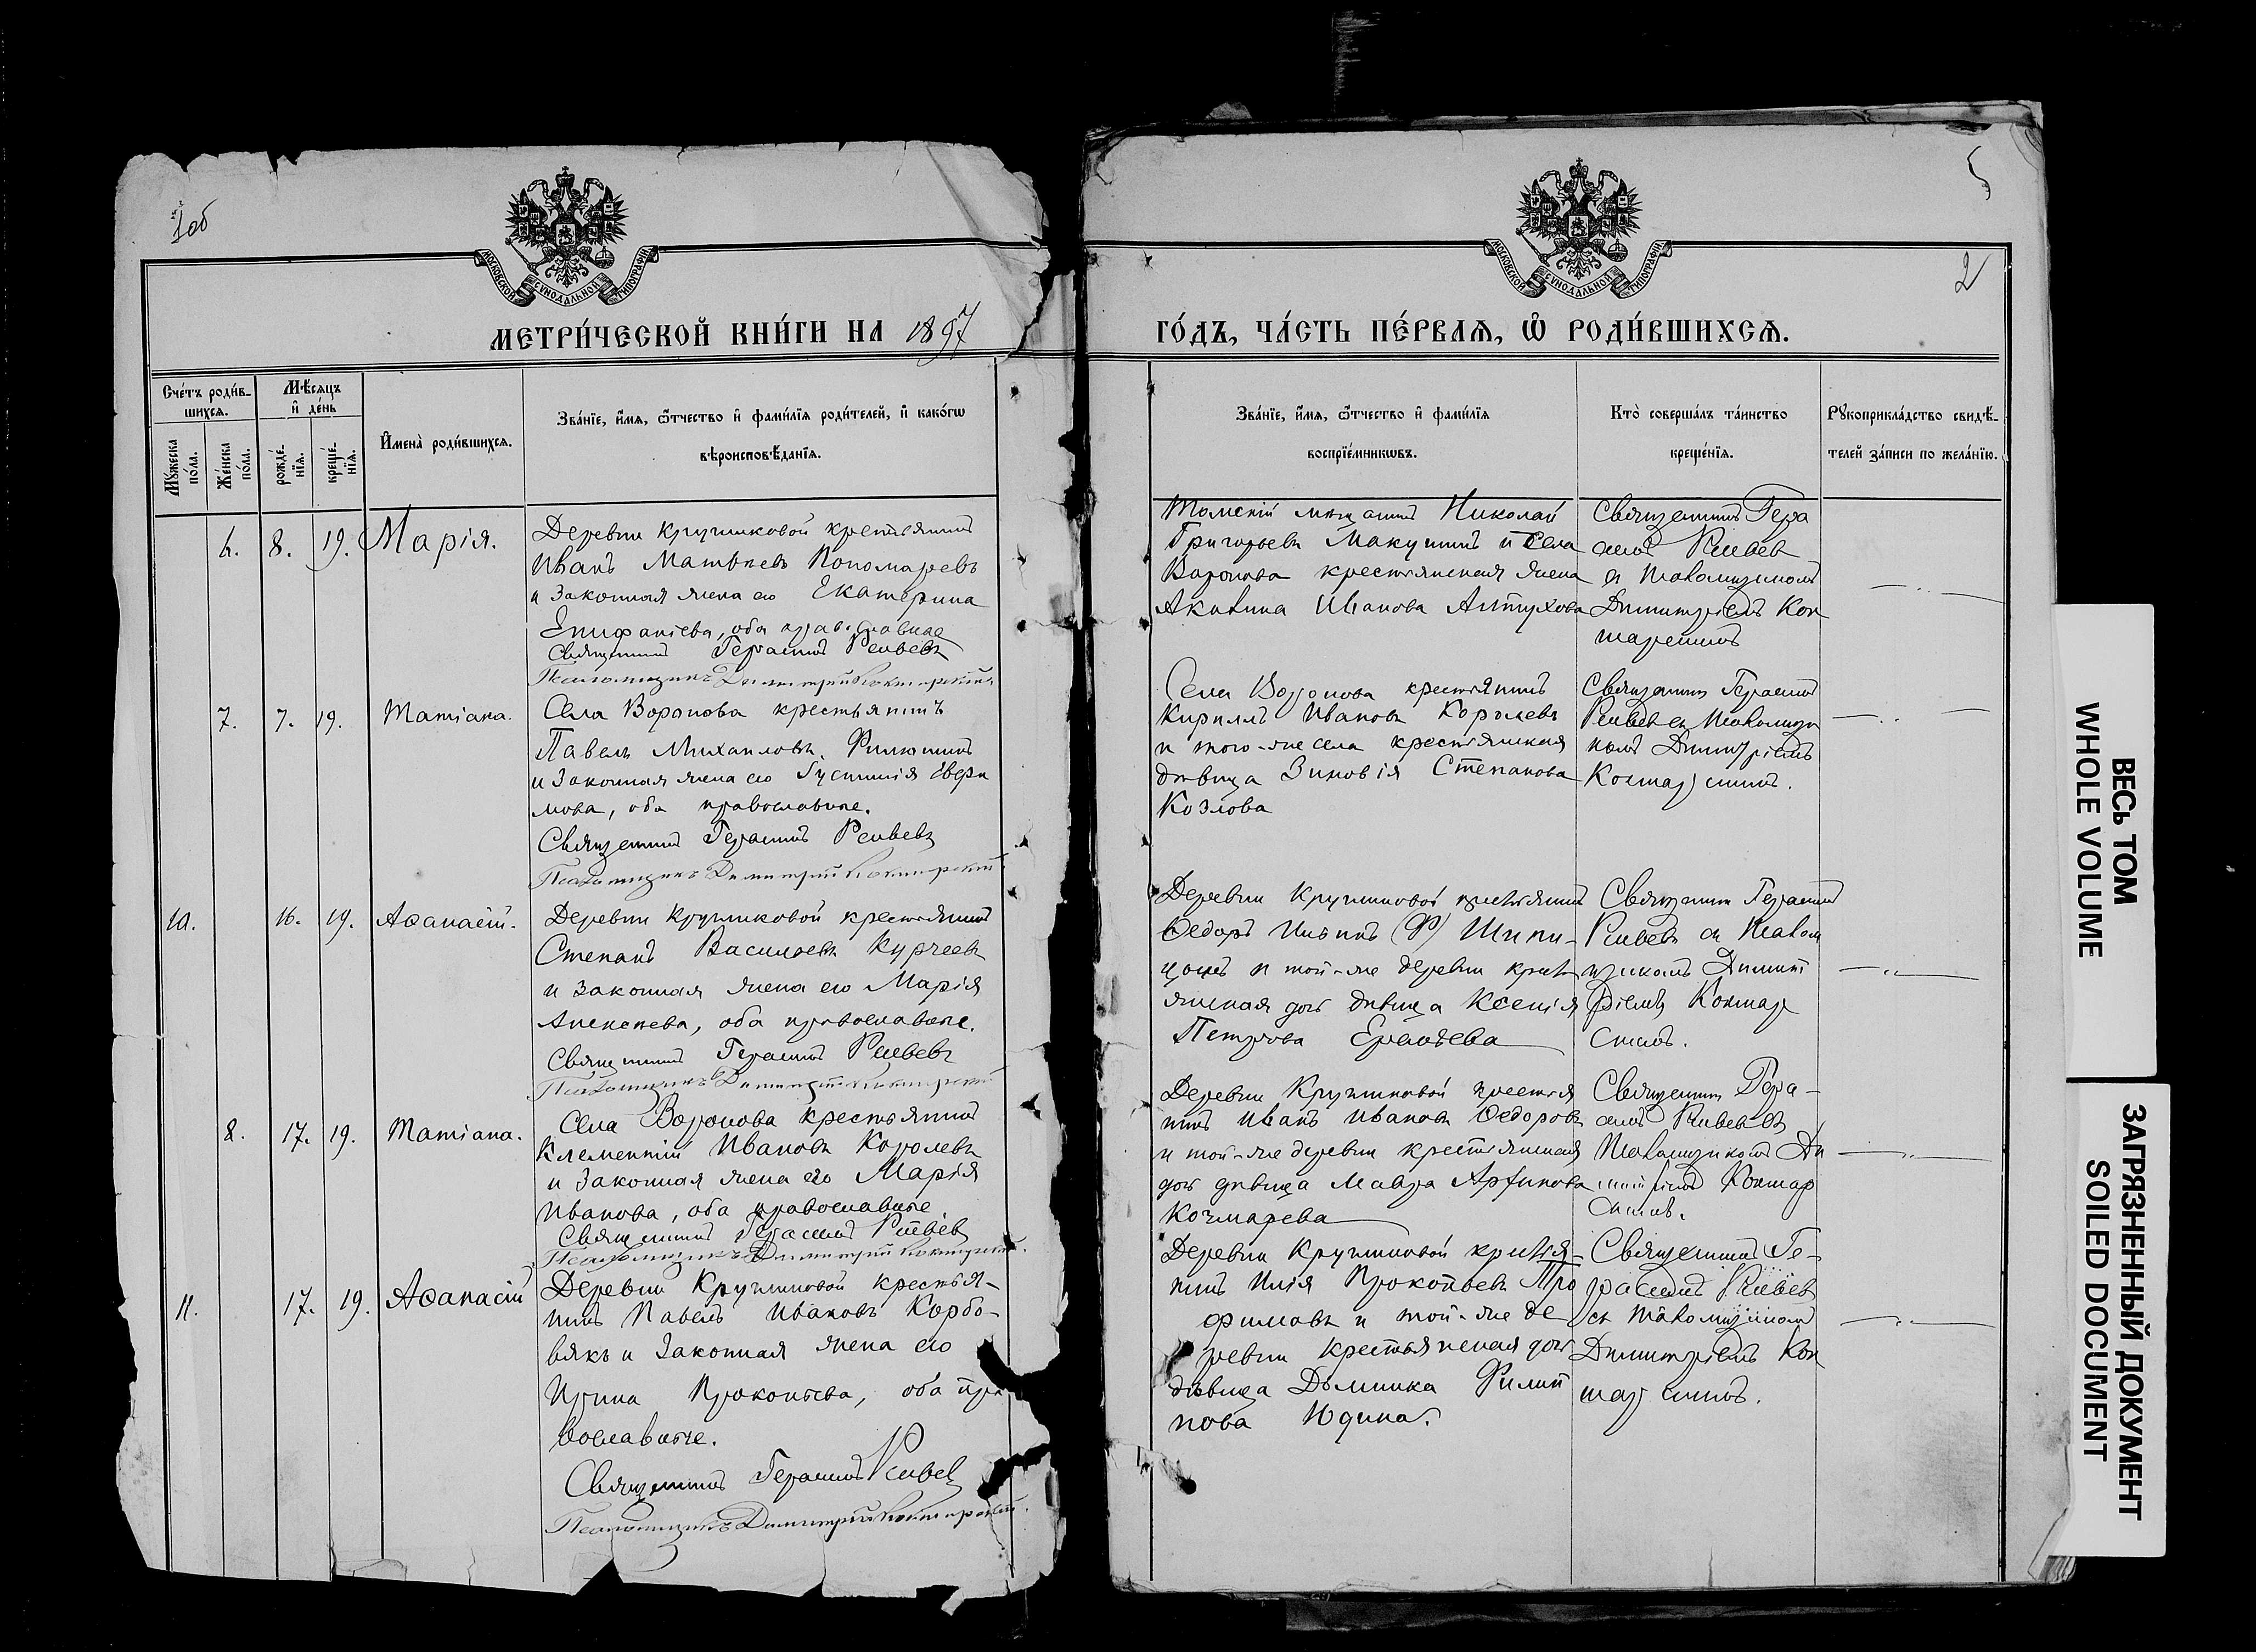 1об
5
2
МОСКОВСКОЙ СѴНОДАЛЬНОЙ ТИПОГРАФІИ
МОСКОВСКОЙ СѴНОДАЛЬНОЙ ТИПОГРАФІИ
МЕТРИ́ЧЕСКОЙ КНИ́ГИ НА 1897 ГО́ДЪ, ЧА́СТЬ ПЕ́РВАЯ, Ѡ РОДИ́ВШИХСЯ.
Сче́тъ роди́в-
шихся.
Мꙋ́жеска
по́ла.
Же́нска
по́ла.
Мѣ́сяцъ
и҆ де́нь
рожде́-
нїя.
креще́-
нїя.
И҆мена̀ роди́вшихся.
Зва́нїе, и҆́мя, ѻ҆́тчество и҆ фами́лїя роди́телей, и҆ како́гѡ
вѣроисповѣ́данїя.
Зва́нїе, и҆́мя, ѻ҆́тчество и҆ фами́лїя
воспрїе́мникѡвъ.
Кто̀ соверша́лъ та́инство
креще́нїя.
Рꙋкоприкла́дство свидѣ́-
телей за́писи по жела́нїю.
8. 19. Марія.
Деревни Кругликовой крестьянинъ
Иванъ Матвѣевъ Пономаревъ
и законная жена его Екатерина
Епифаніева, оба православные
Священникъ Герасимъ
Псаломщикъ Димитрій
Томскій мѣщанинъ Николай
Григорьевъ Макушинъ и села
Воронова крестьянская жена
Акилина Иванова Алтухова
Священникъ Гера
симъ
съ псаломщикомъ
Димитріемъ
7. 7. 19. Татіана.
Села Воронова крестьянинъ
Павелъ Михаиловъ Филюшинъ
и законная жена его Іустинія Ефри
мова, оба православные.
Священникъ Герасимъ
Псаломщикъ Димитрій
Села Воронова крестьянинъ
Кириллъ Ивановъ Королевъ
и того-же села крестьянская
дѣвица Зиновія Степанова
Козлова
Священникъ Герасимъ
съ псаломщи
комъ Димитріемъ
10. 16. 19. Аѳанасій.
Деревни Кругликовой крестьянинъ
Степанъ Васильевъ Курчеевъ
и законная жена его Марія
Алексѣева, оба православные.
Священникъ Герасимъ
Псаломщикъ Димитрій
Деревни Кругликовой крестьянинъ
Ѳедоръ (Ф) Шипи-
цынъ и той-же деревни кресть
янская дочь дѣвица Ксенія
Петрова
Священникъ Герасимъ
съ псалом
щикомъ Димит
ріемъ
8. 17. 19. Татіана.
Села Воронова крестьянинъ
Клементій Ивановъ Королевъ
и законная жена его Марія
Иванова, оба православные
Священникъ Герасимъ
Псаломщикъ Димитрій
Деревни Кругликовой крестья
нинъ Иванъ Ивановъ Ѳедоровъ
и той-же деревни крестьянская
дочь дѣвица Мавра
Кочмарева
Священникъ Гера-
симъ съ
псаломщикомъ Ди
митріемъ
11. 17. 19. Аѳанасій
Деревни Кругликовой крестья-
нинъ Павелъ Ивановъ Корбо-
вякъ и законная жена его
Ирина Прокопьева, оба пра
вославные.
Священникъ Герасимъ
Псаломщикъ Димитрій
Деревни Кругликовой крестья-
нинъ Илія Прокопьевъ Тро
фимовъ и той-же де
ревни крестьянская дочь
дѣвица Домника Филип
пова Юдина.
Священникъ Ге-
расимъ
съ псаломщикомъ
Димитріемъ
ВЕСЬ ТОМ
WHOLE VOLUME
ЗАГРЯЗНЕННЫЙ ДОКУМЕНТ
SOILED DOCUMENT